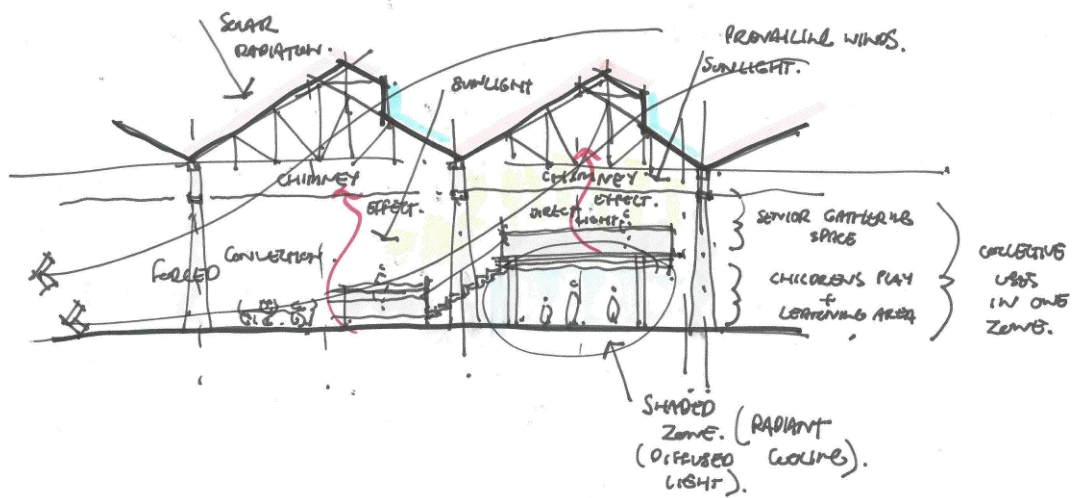 SOLAR
RADIATION.
SUNLIGHT
PREVAILING WINDS.
SUNLIGHT.
CHIMNEY
EFFECT.
CHIMNEY
EFFECT.
DIRECT
LIGHT.
FORCED
CONVECTION.
SENIOR GATHERING
SPACE
CHILDRENS PLAY
+
LEARNING AREA
COLLECTIVE
USES
IN ONE
ZONE.
SHADED
ZONE.
(DIFFUSED
LIGHT).
(RADIANT
COOLING).